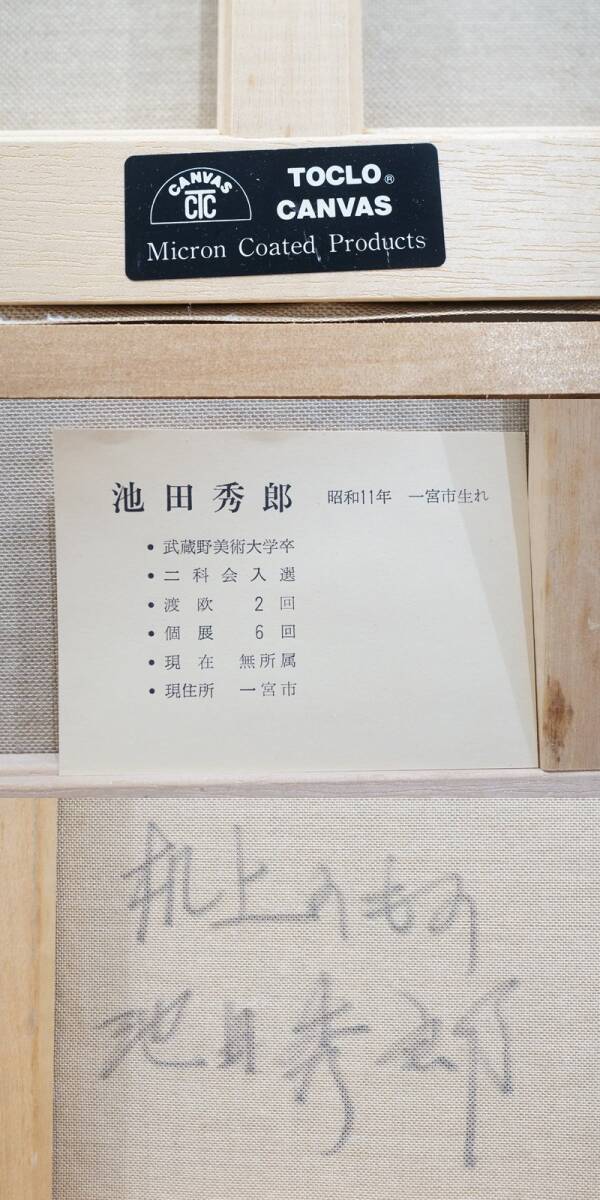 CANVAS
CTC
TOCLO®
CANVAS
Micron Coated Products
池田秀郎 昭和11年 一宮市生れ
• 武蔵野美術大学卒
• 二科会入選
• 渡欧 2回
• 個展 6回
• 現在 無所属
• 現住所 一宮市
机上のもの
池田秀郎